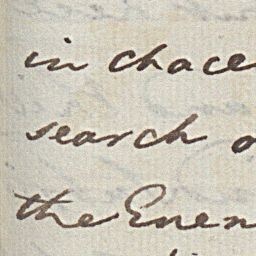 in chace
search o
the Enem